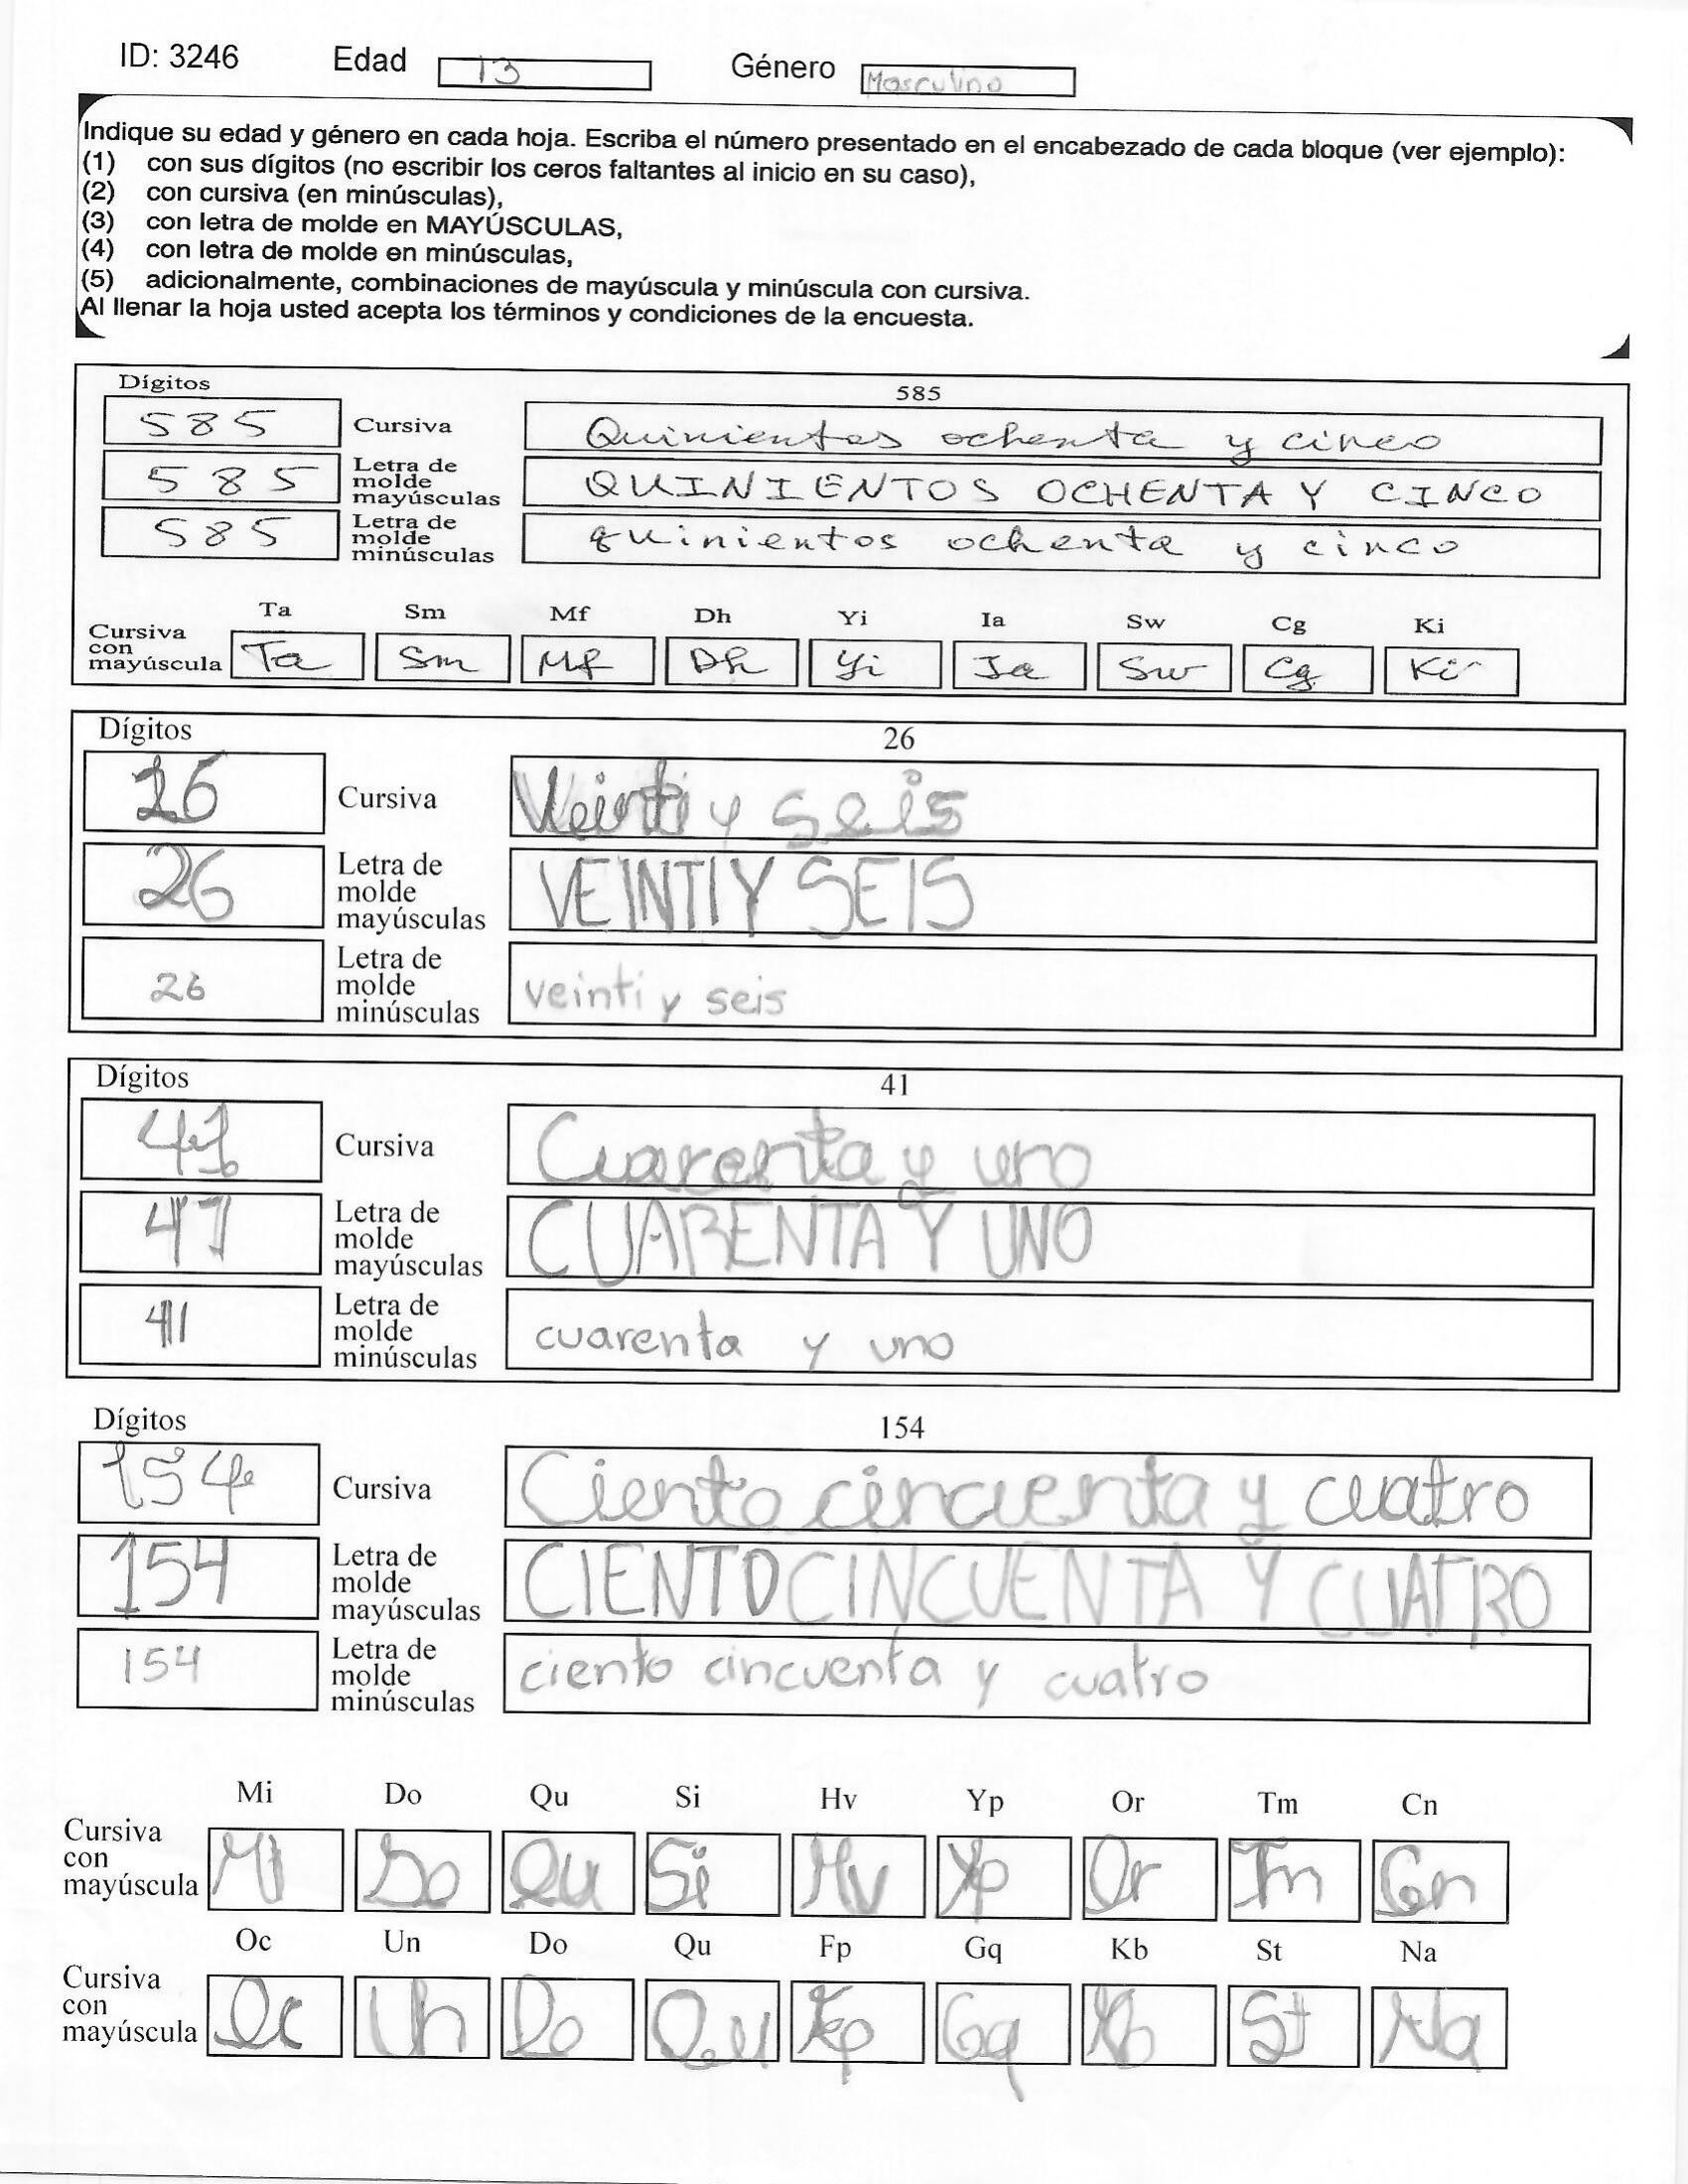 ID: 3246 Edad 13 Género Masculino
Indique su edad y género en cada hoja. Escriba el número presentado en el encabezado de cada bloque (ver ejemplo):
(1) con sus dígitos (no escribir los ceros faltantes al inicio en su caso),
(2) con cursiva (en minúsculas),
(3) con letra de molde en MAYÚSCULAS,
(4) con letra de molde en minúsculas,
(5) adicionalmente, combinaciones de mayúscula y minúscula con cursiva.
Al llenar la hoja usted acepta los términos y condiciones de la encuesta.
Dígitos 585
585 Cursiva Quinientos ochenta y cinco
585 Letra de molde mayúsculas QUINIENTOS OCHENTA Y CINCO
585 Letra de molde minúsculas quinientos ochenta y cinco
Ta Sm Mf Dh Yi Ia Sw Cg Ki
Cursiva con mayúscula Ta Sm Mf Dh Yi Ia Sw Cg Ki
Dígitos 26
26 Cursiva Veinti y seis
26 Letra de molde mayúsculas VEINTI Y SEIS
26 Letra de molde minúsculas veinti y seis
Dígitos 41
41 Cursiva Cuarenta y uno
41 Letra de molde mayúsculas CUARENTA Y UNO
41 Letra de molde minúsculas cuarenta y uno
Dígitos 154
154 Cursiva Ciento cincuenta y cuatro
154 Letra de molde mayúsculas CIENTO CINCUENTA Y CUATRO
154 Letra de molde minúsculas ciento cincuenta y cuatro
Mi Do Qu Si Hv Yp Or Tm Cn
Cursiva con mayúscula Mi Do Qu Si Hv Yp Or Tm Cn
Oc Un Do Qu Fp Gq Kb St Na
Cursiva con mayúscula Oc Un Do Qu Fp Gq Kb St Na